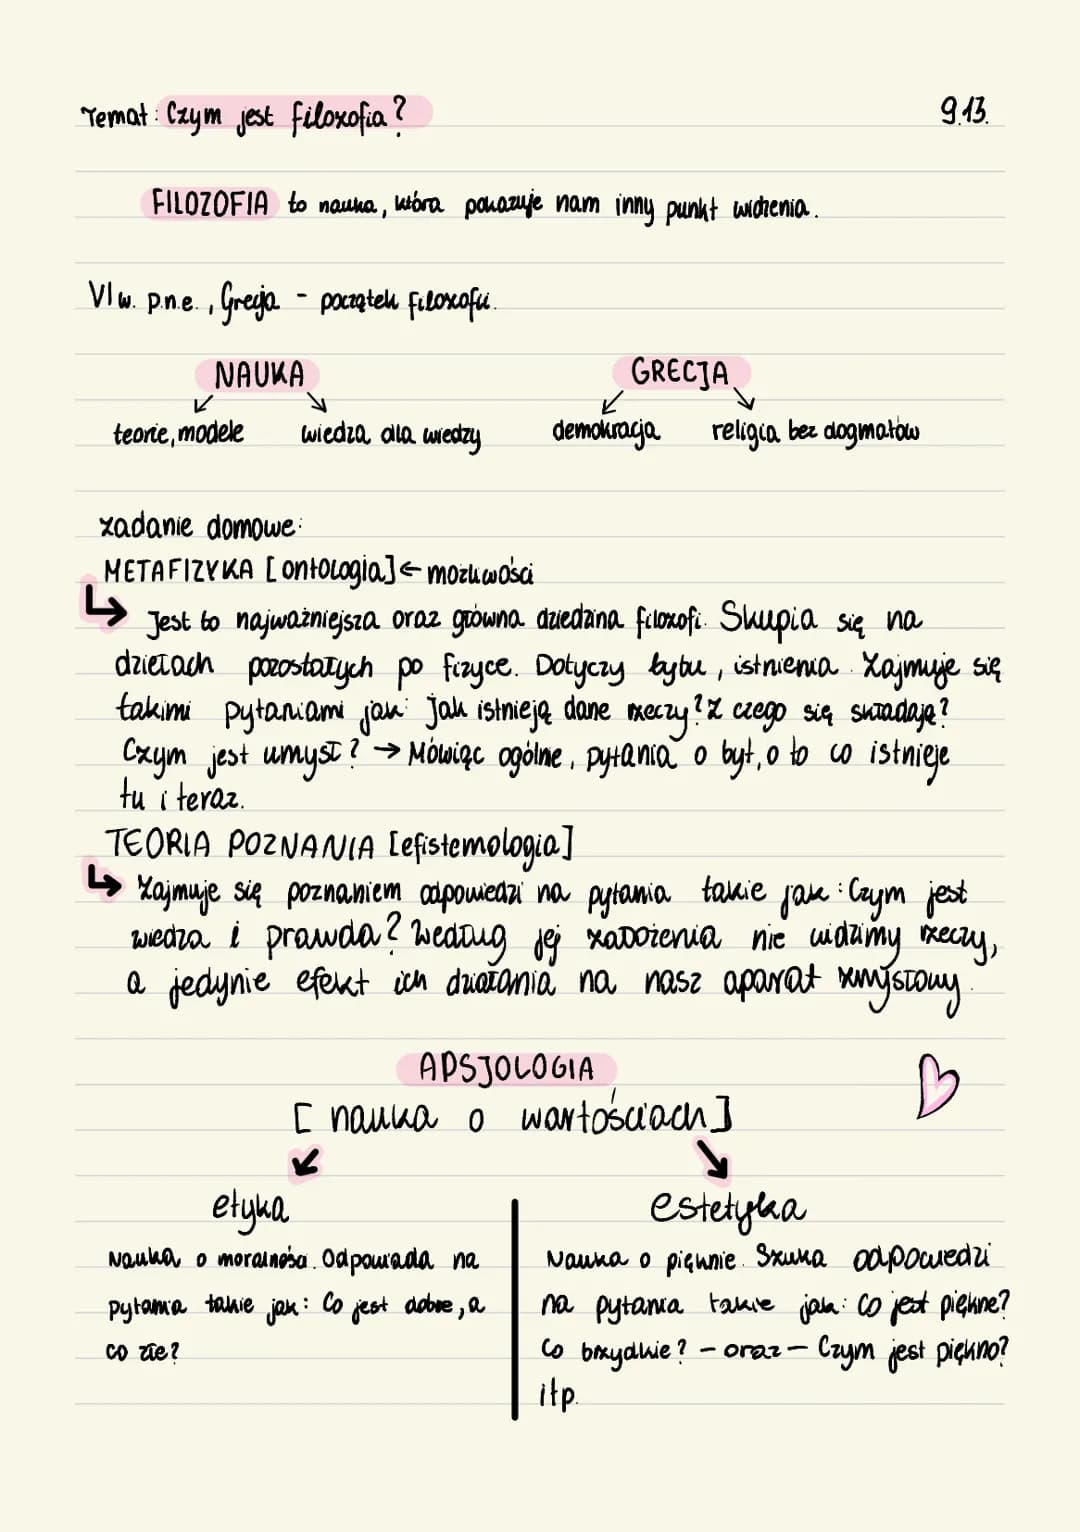 Temat: Czym jest filozofia? 9.13.
FILOZOFIA to nauka, która pokazuje nam inny punkt widzenia.
VI w. p.n.e., Grecja - początek filozofii.
NAUKA GRECJA
teorie, modele wiedza dla wiedzy demokracja religia bez dogmatów
zadanie domowe:
METAFIZYKA [ontologia] ← możliwości
Jest to najważniejsza oraz główna dziedzina filozofi. Skupia się na
dziełach pozostałych po fizyce. Dotyczy bytu, istnienia. Zajmuje się
takimi pytaniami jak: Jak istnieją dane rzeczy? Z czego się składają?
Czym jest umysł? → Mówiąc ogólne, pytania o był, o to co istnieje
tu i teraz.
TEORIA POZNANIA [efistemologia]
Zajmuje się poznaniem odpowiedzi na pytania takie jak: Czym jest
wiedza i prawda? Według jej założenia nie widzimy rzeczy,
a jedynie efekt ich działania na nasz aparat zmysłowy.
APSJOLOGIA
[nauka o wartościach]
etyka estetyka
Nauka o moralności. Odpowiada na
pytania takie jak: Co jest dobre, a
co złe?
Nauka o pięknie. Szuka odpowiedzi
na pytania takie jak: Co jest piękne?
Co brzydkie? - oraz - Czym jest piękno?
itp.